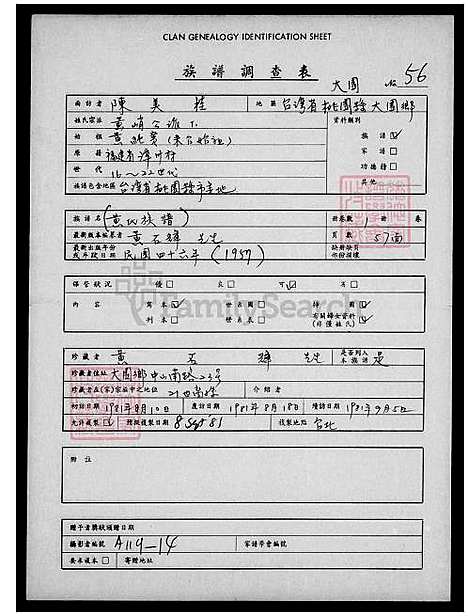 CLAN GENEALOGY IDENTIFICATION SHEET
族譜調查表
大園 No. 56
面訪者 陳美桂 地區 台灣省桃園縣大園鄉
姓氏宗派 黃峭公派下 資料類別
始祖 族譜
原籍 福建省漳州府 家譜
世代 16~22世代 功德牌
族譜包含地區 台灣省桃園縣市等地 其他
族譜名 (黃氏族譜) 冊卷數 1 卷
最新版本編纂者 黃石輝先生 頁數 57面
最新出版年份或年段日期 民國四十六年 (1957) 缺冊缺頁份份損壞
保管狀況 優 良 可 劣
內容 寫本 世系圖 排圖
列本 歷史系 有關婦女資料(非僅姓氏)
FamilySearch
珍藏者 黃石輝先生 是否列入本族譜 是
珍藏者住址 大園鄉中山南路23号
珍藏者在(家)宗族中之地位 21世裔孫 介紹者
初訪日期 1981年8月10日 度訪日期 1981年8月18日 續訪日期 1981年9月5日
允許複製 預擬複製日期 8 Sept 81 複製地點 台北
附註
贈予者獎狀頒贈日期
攝影者編號 A119-14 家譜學會編號
要求複本 寄贈地址